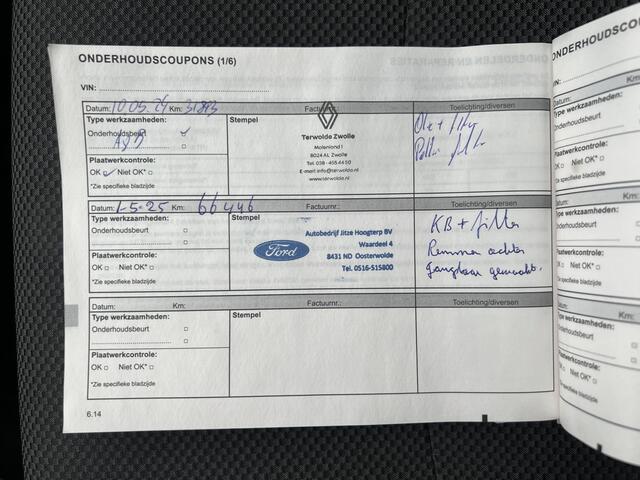 ONDERHOUDSCOUPONS (1/6)
VIN:
Datum: 10.05.24 Km: 31893 Factuurnr.: Toelichting/diversen
Type werkzaamheden: Stempel
Onderhoudsbeurt
Terwolde Zwolle
Molenlend 1
8024 AL Zwolle
Tel. 038 - 455 44 50
E-mail info@terwolde.nl
www.terwolde.nl
Olie + filter
Plaatwerkcontrole:
OK Niet OK*
*Zie specifieke bladzijde
Datum: 1-5-25 Km: 66446 Factuurnr.: Toelichting/diversen
Type werkzaamheden: Stempel
Onderhoudsbeurt
Ford
Autobedrijf Jitze Hoogterp BV
Waardeel 4
8431 ND Oosterwolde
Tel. 0516-515800
KB + filter
Remmen achter
Gangbaar gemaakt.
Plaatwerkcontrole:
OK Niet OK*
*Zie specifieke bladzijde
Datum: Km: Factuurnr.: Toelichting/diversen
Type werkzaamheden: Stempel
Onderhoudsbeurt
Plaatwerkcontrole:
OK Niet OK*
*Zie specifieke bladzijde
6.14
ONDERHOUDSCO
VIN:
Datum: Km:
Type werkzaamheden:
Onderhoudsbeurt
Plaatwerkcontrole:
OK Niet OK*
*Zie specifieke bladzijde
Datum: Km:
Type werkzaamheden:
Onderhoudsbeurt
Plaatwerkcontrole:
OK Niet OK*
*Zie specifieke bladzijde
Datum: Km:
Type werkzaamheden:
Onderhoudsbeurt
Plaatwerkcontrole:
OK Niet OK*
*Zie specifieke bladzijde